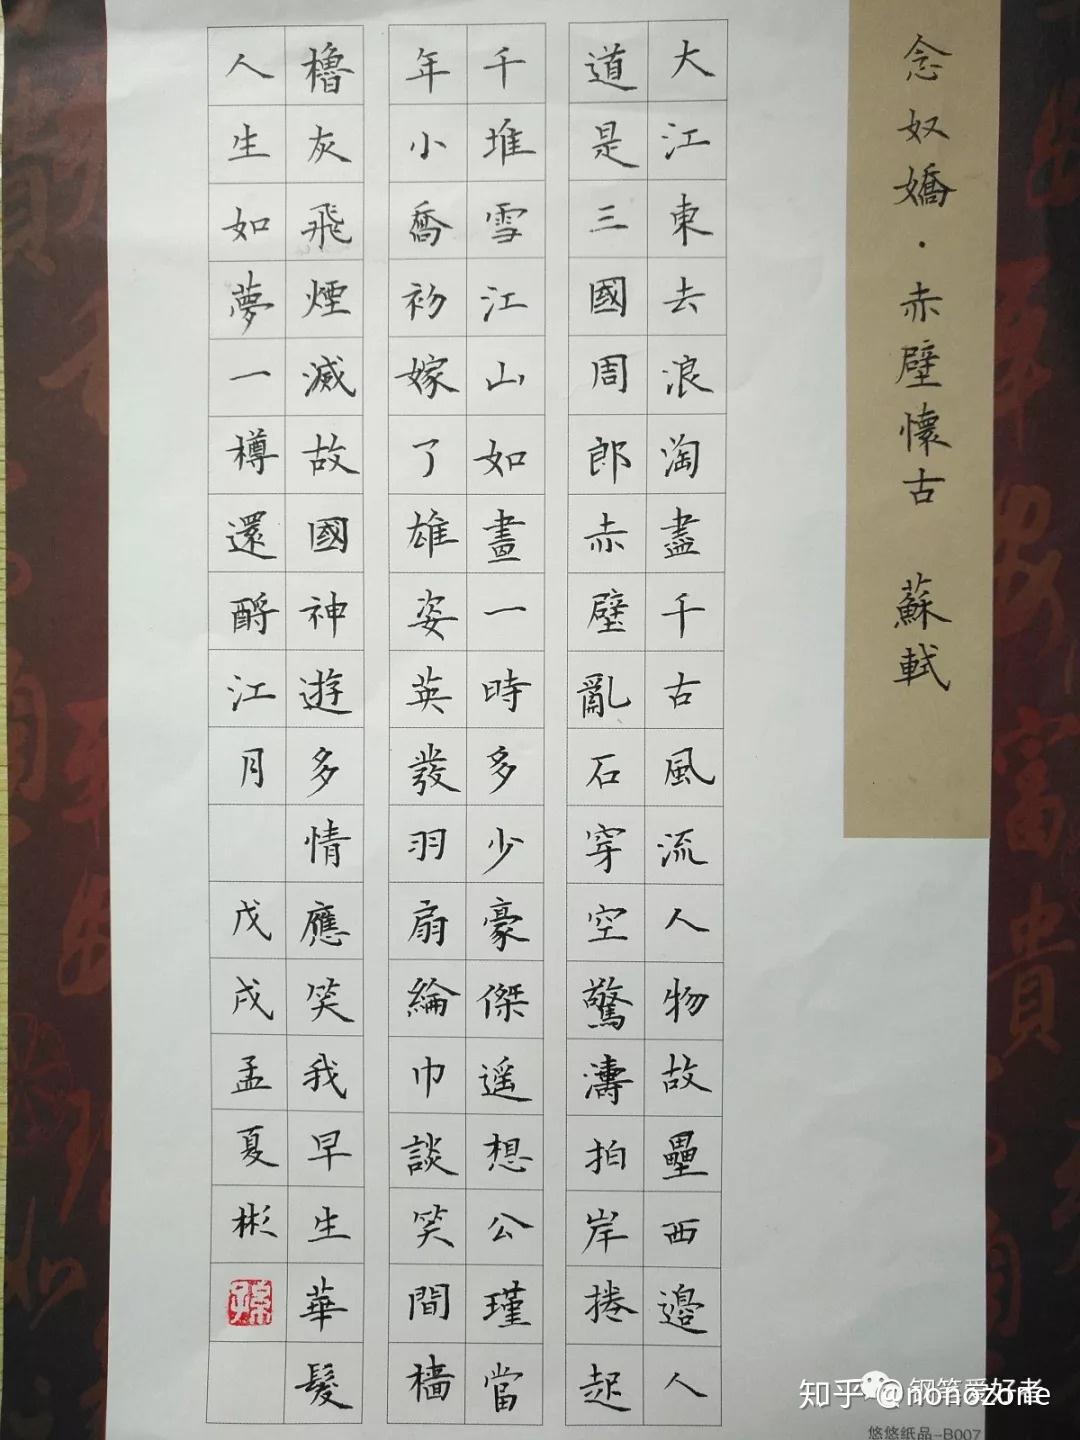 念奴嬌·赤壁懷古 蘇軾
大江東去浪淘盡千古風流人物故壘西邊人
道是三國周郎赤壁亂石穿空驚濤拍岸捲起
千堆雪江山如畫一時多少豪傑遥想公瑾當
年小喬初嫁了雄姿英發羽扇綸巾談笑間檣
櫓灰飛煙滅故國神遊多情應笑我早生華髮
人生如夢一樽還酹江月 戊戌孟夏彬
知乎 @nonozone
钢笔爱好者
悠悠纸品-B007